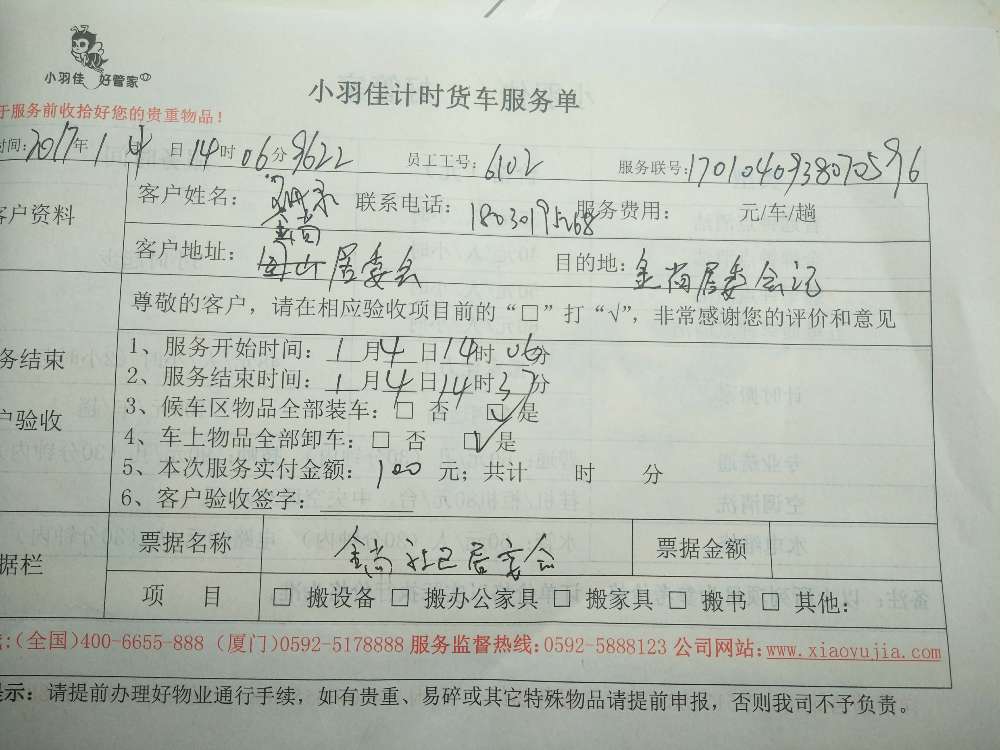 小羽佳 好管家
小羽佳计时货车服务单
于服务前收拾好您的贵重物品！
时间：2017年1月4日14时06分9622 员工工号：6102 服务联号：170104093807059 96
客户资料
客户姓名： 联系电话：18030195268 服务费用： 元/车/趟
金尚
客户地址： 居委会 目的地：金尚居委会
尊敬的客户，请在相应验收项目前的“□”打“√”，非常感谢您的评价和意见
务结束
户验收
1、服务开始时间：1月4日14时06分
2、服务结束时间：1月4日14时37分
3、候车区物品全部装车：□ 否 □√是
4、车上物品全部卸车：□ 否 □√是
5、本次服务实付金额：100 元；共计 时 分
6、客户验收签字：
据栏
票据名称 金尚社区居委会 票据金额
项 目 □ 搬设备 □ 搬办公家具 □ 搬家具 □ 搬书 □ 其他：
:(全国)400-6655-888 (厦门)0592-5178888 服务监督热线:0592-5888123 公司网站:www.xiaoyujia.com
提示：请提前办理好物业通行手续，如有贵重、易碎或其它特殊物品请提前申报，否则我司不予负责。